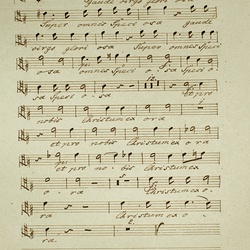 Gaude virgo glori osa
Super omnes Speci osa gaude
virgo glori osa Super omnes Speci
osa omnes Speci o sa Speci o
sa Speci o sa et pro
nobis Christum ex ora
et pro nobis Christum ex a
et pro no bis Christum ex a
o ra Christum ex o
ra Christum ex o
ra